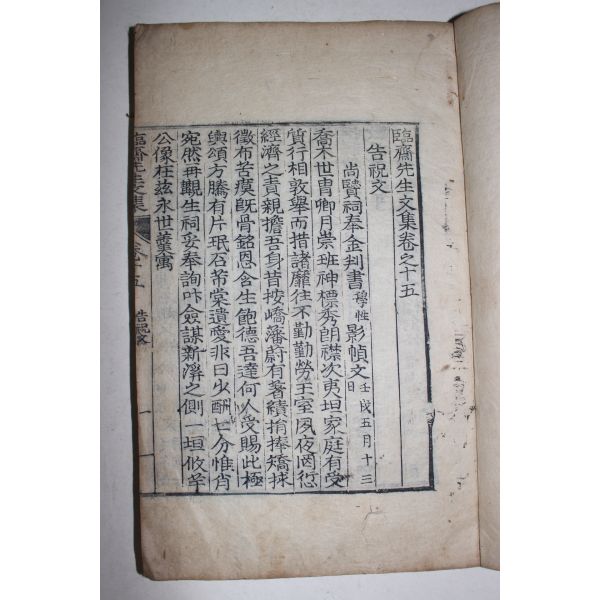 臨齋先生文集卷之十五
告祝文
尚賢祠奉金判書學性影幀文壬戌五月十三日
喬木世冑卿月崇班神標秀朗襟次夷坦家庭有受
質行相敦擧而措諸靡往不勤勤勞王室夙夜罔愆
經濟之責親擔吾身昔按嶠藩蔚有著績捐捧矯捄
徵布苦瘼旣骨銘恩含生飽德吾達何人受賜此極
輿頌方騰有片珉石芾棠遺愛非曰少酬七分惟肖
宛然再覩生祠妥奉詢叶僉謀新之側一垣攸芋
公像在玆永世寓
臨齋先生文集 卷十五 告祝文 一